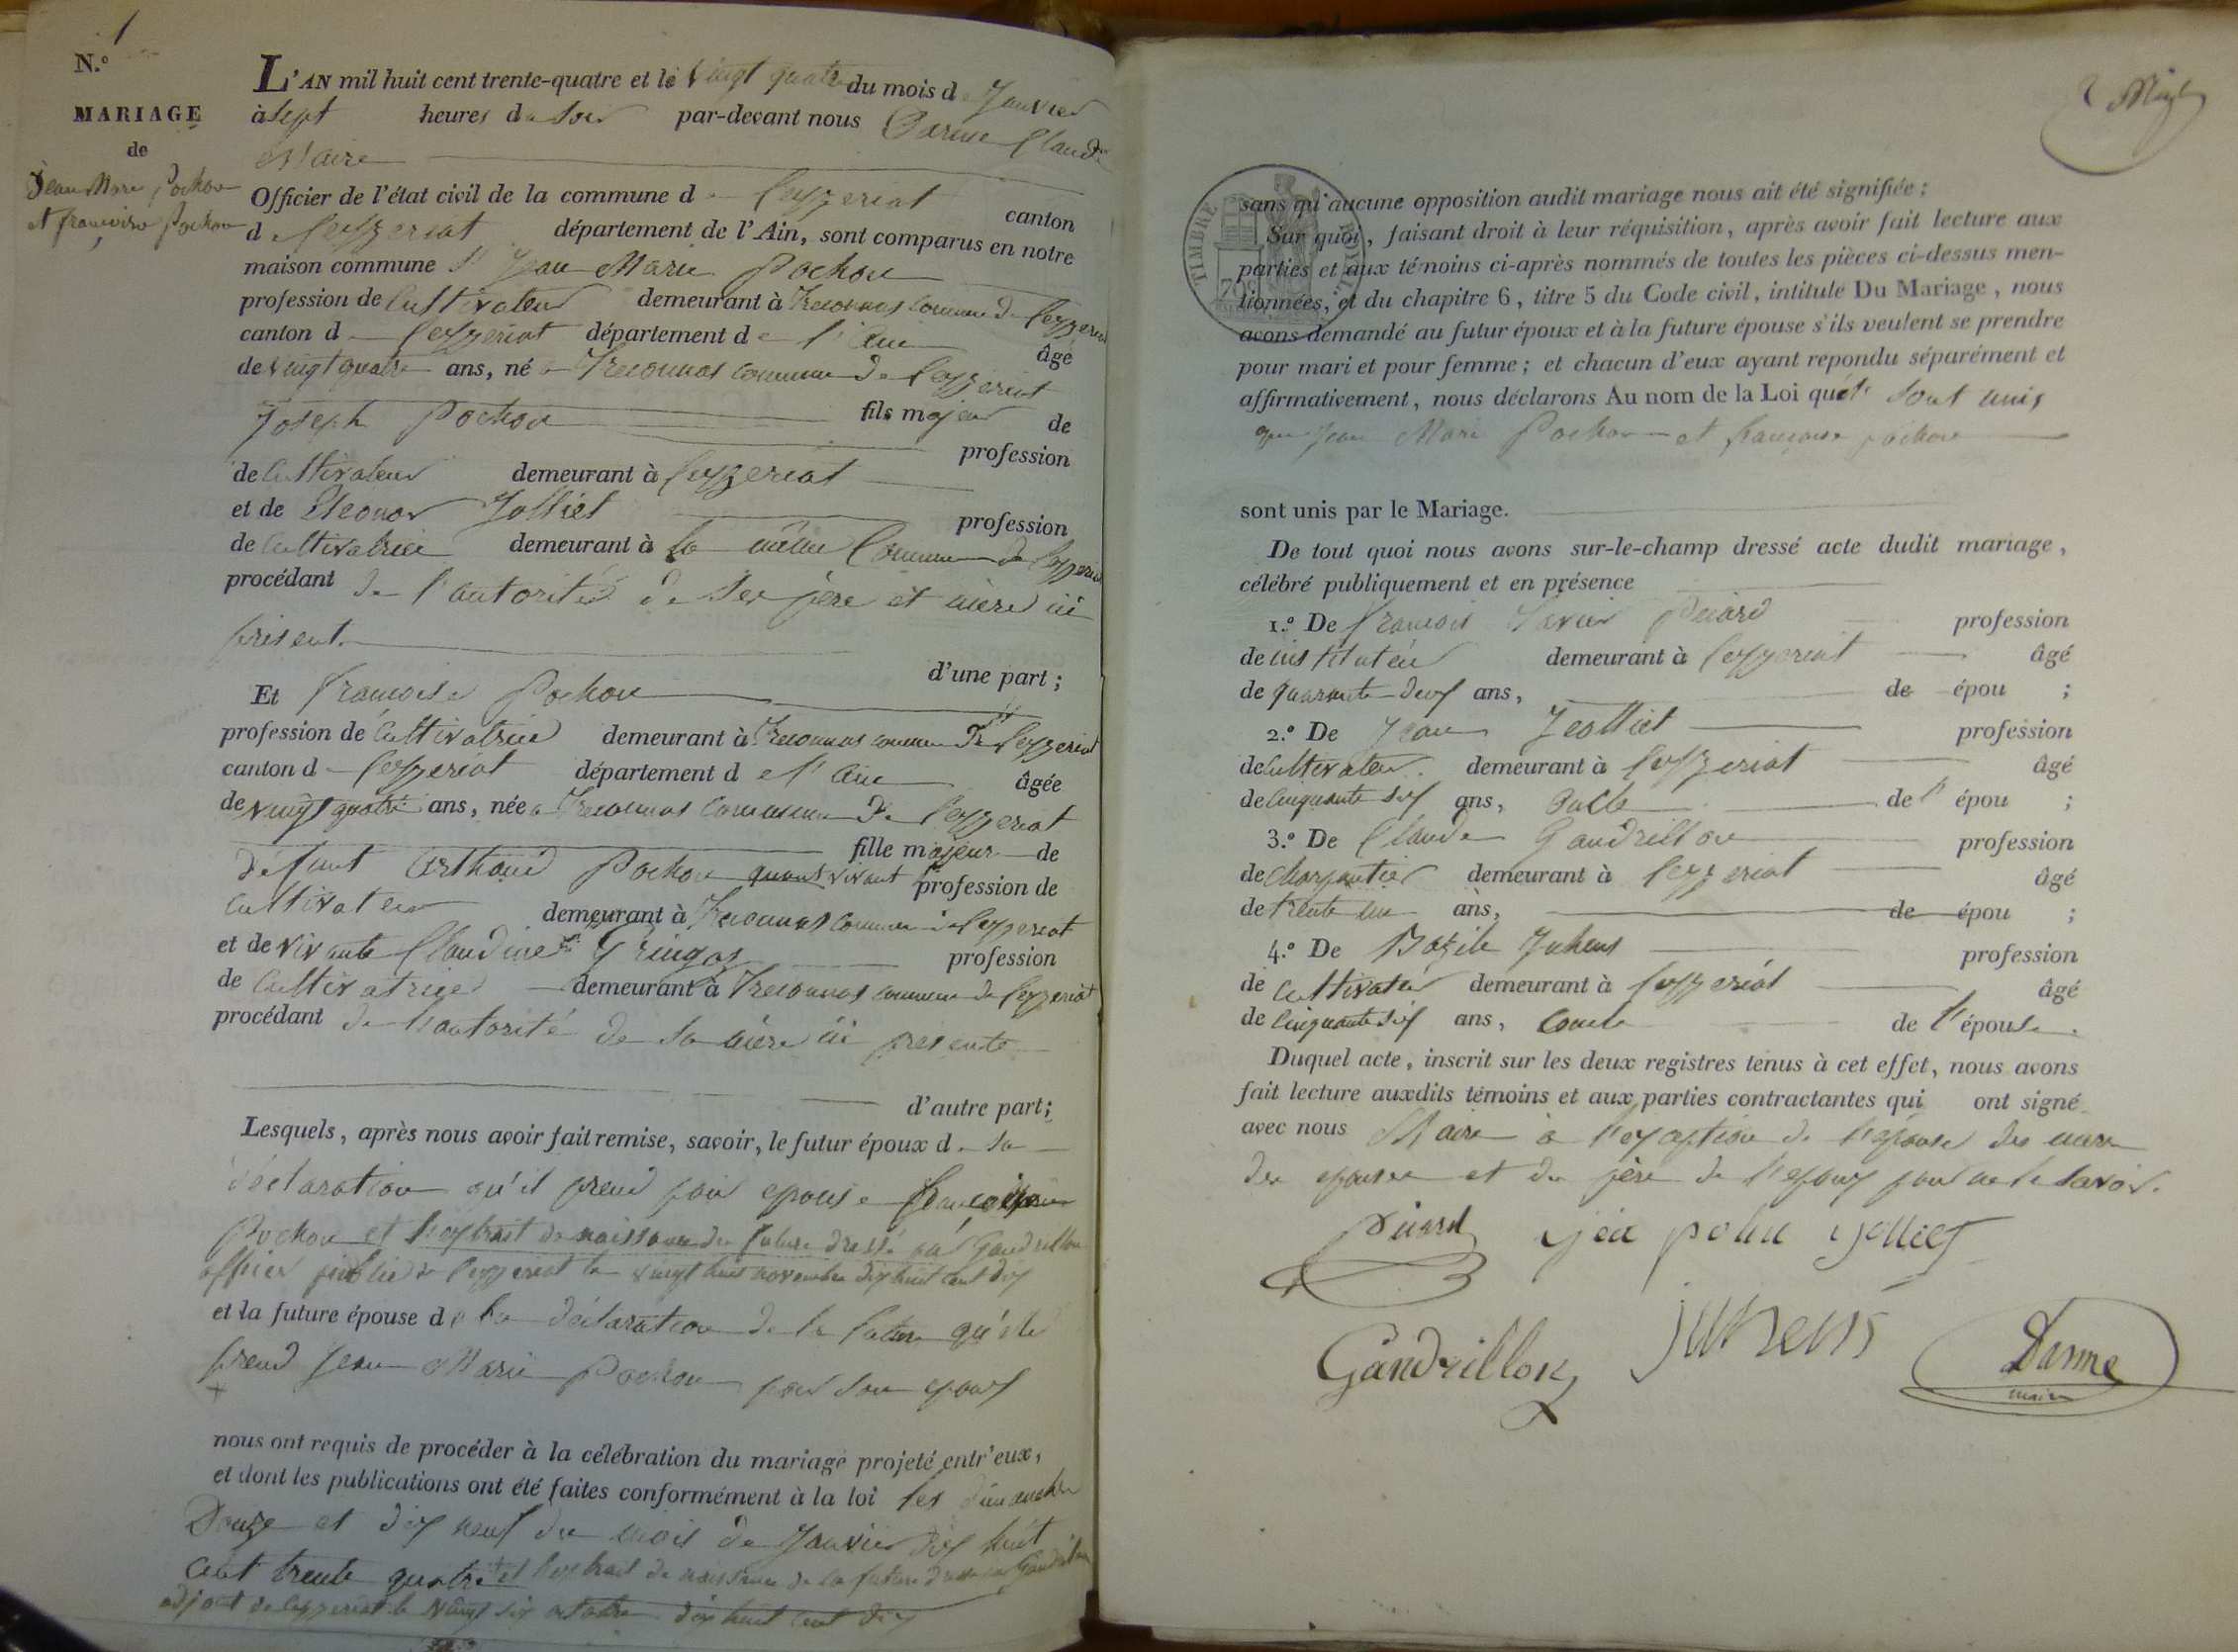 1
N.º
MARIAGE
de
Jean Marie Pochon
et françoise Pochon
L'AN mil huit cent trente-quatre et le vingt quatre du mois de Janvier
à sept heures du soir par-devant nous Darme Claude
Maire
Officier de l'état civil de la commune de Ceyzeriat canton
de Ceyzeriat département de l'Ain, sont comparus en notre
maison commune Sr Jean Marie Pochon
profession de Cultivateur demeurant à Treconnas commune de Ceyzeriat
canton de Ceyzeriat département de l'Ain âgé
de vingt quatre ans, né à Treconnas commune de Ceyzeriat
fils majeur de
Joseph Pochon profession
de Cultivateur demeurant à Ceyzeriat
et de Eleonor Jolliet profession
de Cultivatrice demeurant à la même Commune de Ceyzeriat
procédant de l'autorité de ses père et mère ici
présent
d'une part;
Et françoise Pochon
profession de Cultivatrice demeurant à Treconnas commune de Ceyzeriat
canton de Ceyzeriat département de l'Ain âgée
de vingt quatre ans, née à Treconnas commune de Ceyzeriat
fille majeur de
défunt Pochon vivant profession de
Cultivateur demeurant à Treconnas commune de Ceyzeriat
et de vivante Claudine profession
de Cultivatrice demeurant à Treconnas commune de Ceyzeriat
procédant de l'autorité de sa mère ici présente
d'autre part;
Lesquels, après nous avoir fait remise, savoir, le futur époux de sa
déclaration qu'il prend pour epouse françoise
Pochon et l'extrait de naissance du futur dressé par Gandrillon
officier public de Ceyzeriat le vingt huit novembre dix huit cent dix
et la future épouse de la déclaration de la future qu'elle
prend Jean Marie Pochon pour son epoux
+
nous ont requis de procéder à la célébration du mariage projeté entr'eux,
et dont les publications ont été faites conformément à la loi les dimanches
Douze et dix neuf du mois de Janvier dix huit
cent trente quatre + et l'extrait de naissance de la future dressé par Gandrillon
adjoint de Ceyzeriat le vingt six octobre dix huit cent dix
TIMBRE
sans qu'aucune opposition audit mariage nous ait été signifiée;
Sur quoi, faisant droit à leur réquisition, après avoir fait lecture aux
parties et aux témoins ci-après nommés de toutes les pièces ci-dessus men-
tionnées, et du chapitre 6, titre 5 du Code civil, intitulé Du Mariage, nous
avons demandé au futur époux et à la future épouse s'ils veulent se prendre
pour mari et pour femme; et chacun d'eux ayant repondu séparément et
affirmativement, nous déclarons Au nom de la Loi qu'ils sont unis
que Jean Marie Pochon et françoise pochon
sont unis par le Mariage.
De tout quoi nous avons sur-le-champ dressé acte dudit mariage,
célébré publiquement et en présence
1.º De françois Xavier Picard profession
de instituteur demeurant à Ceyzeriat âgé
de quarante deux ans, de épou ;
2.º De Jean Jolliet profession
de Cultivateur demeurant à Ceyzeriat âgé
de Cinquante six ans, oncle de l'épou ;
3.º De Claude Gandrillon profession
de charpentier demeurant à Ceyzeriat âgé
de trente un ans, de épou ;
4.º De Bazile Juhens profession
de Cultivateur demeurant à Ceyzeriat âgé
de Cinquante six ans, de l'épouse.
Duquel acte, inscrit sur les deux registres tenus à cet effet, nous avons
fait lecture auxdits témoins et aux parties contractantes qui ont signé
avec nous Maire à l'exception de l'épouse des mere
des epouses et du père de l'epoux pour ne le savoir.
picard jea pohu jolliet
Gandrillon juhens Darme
maire